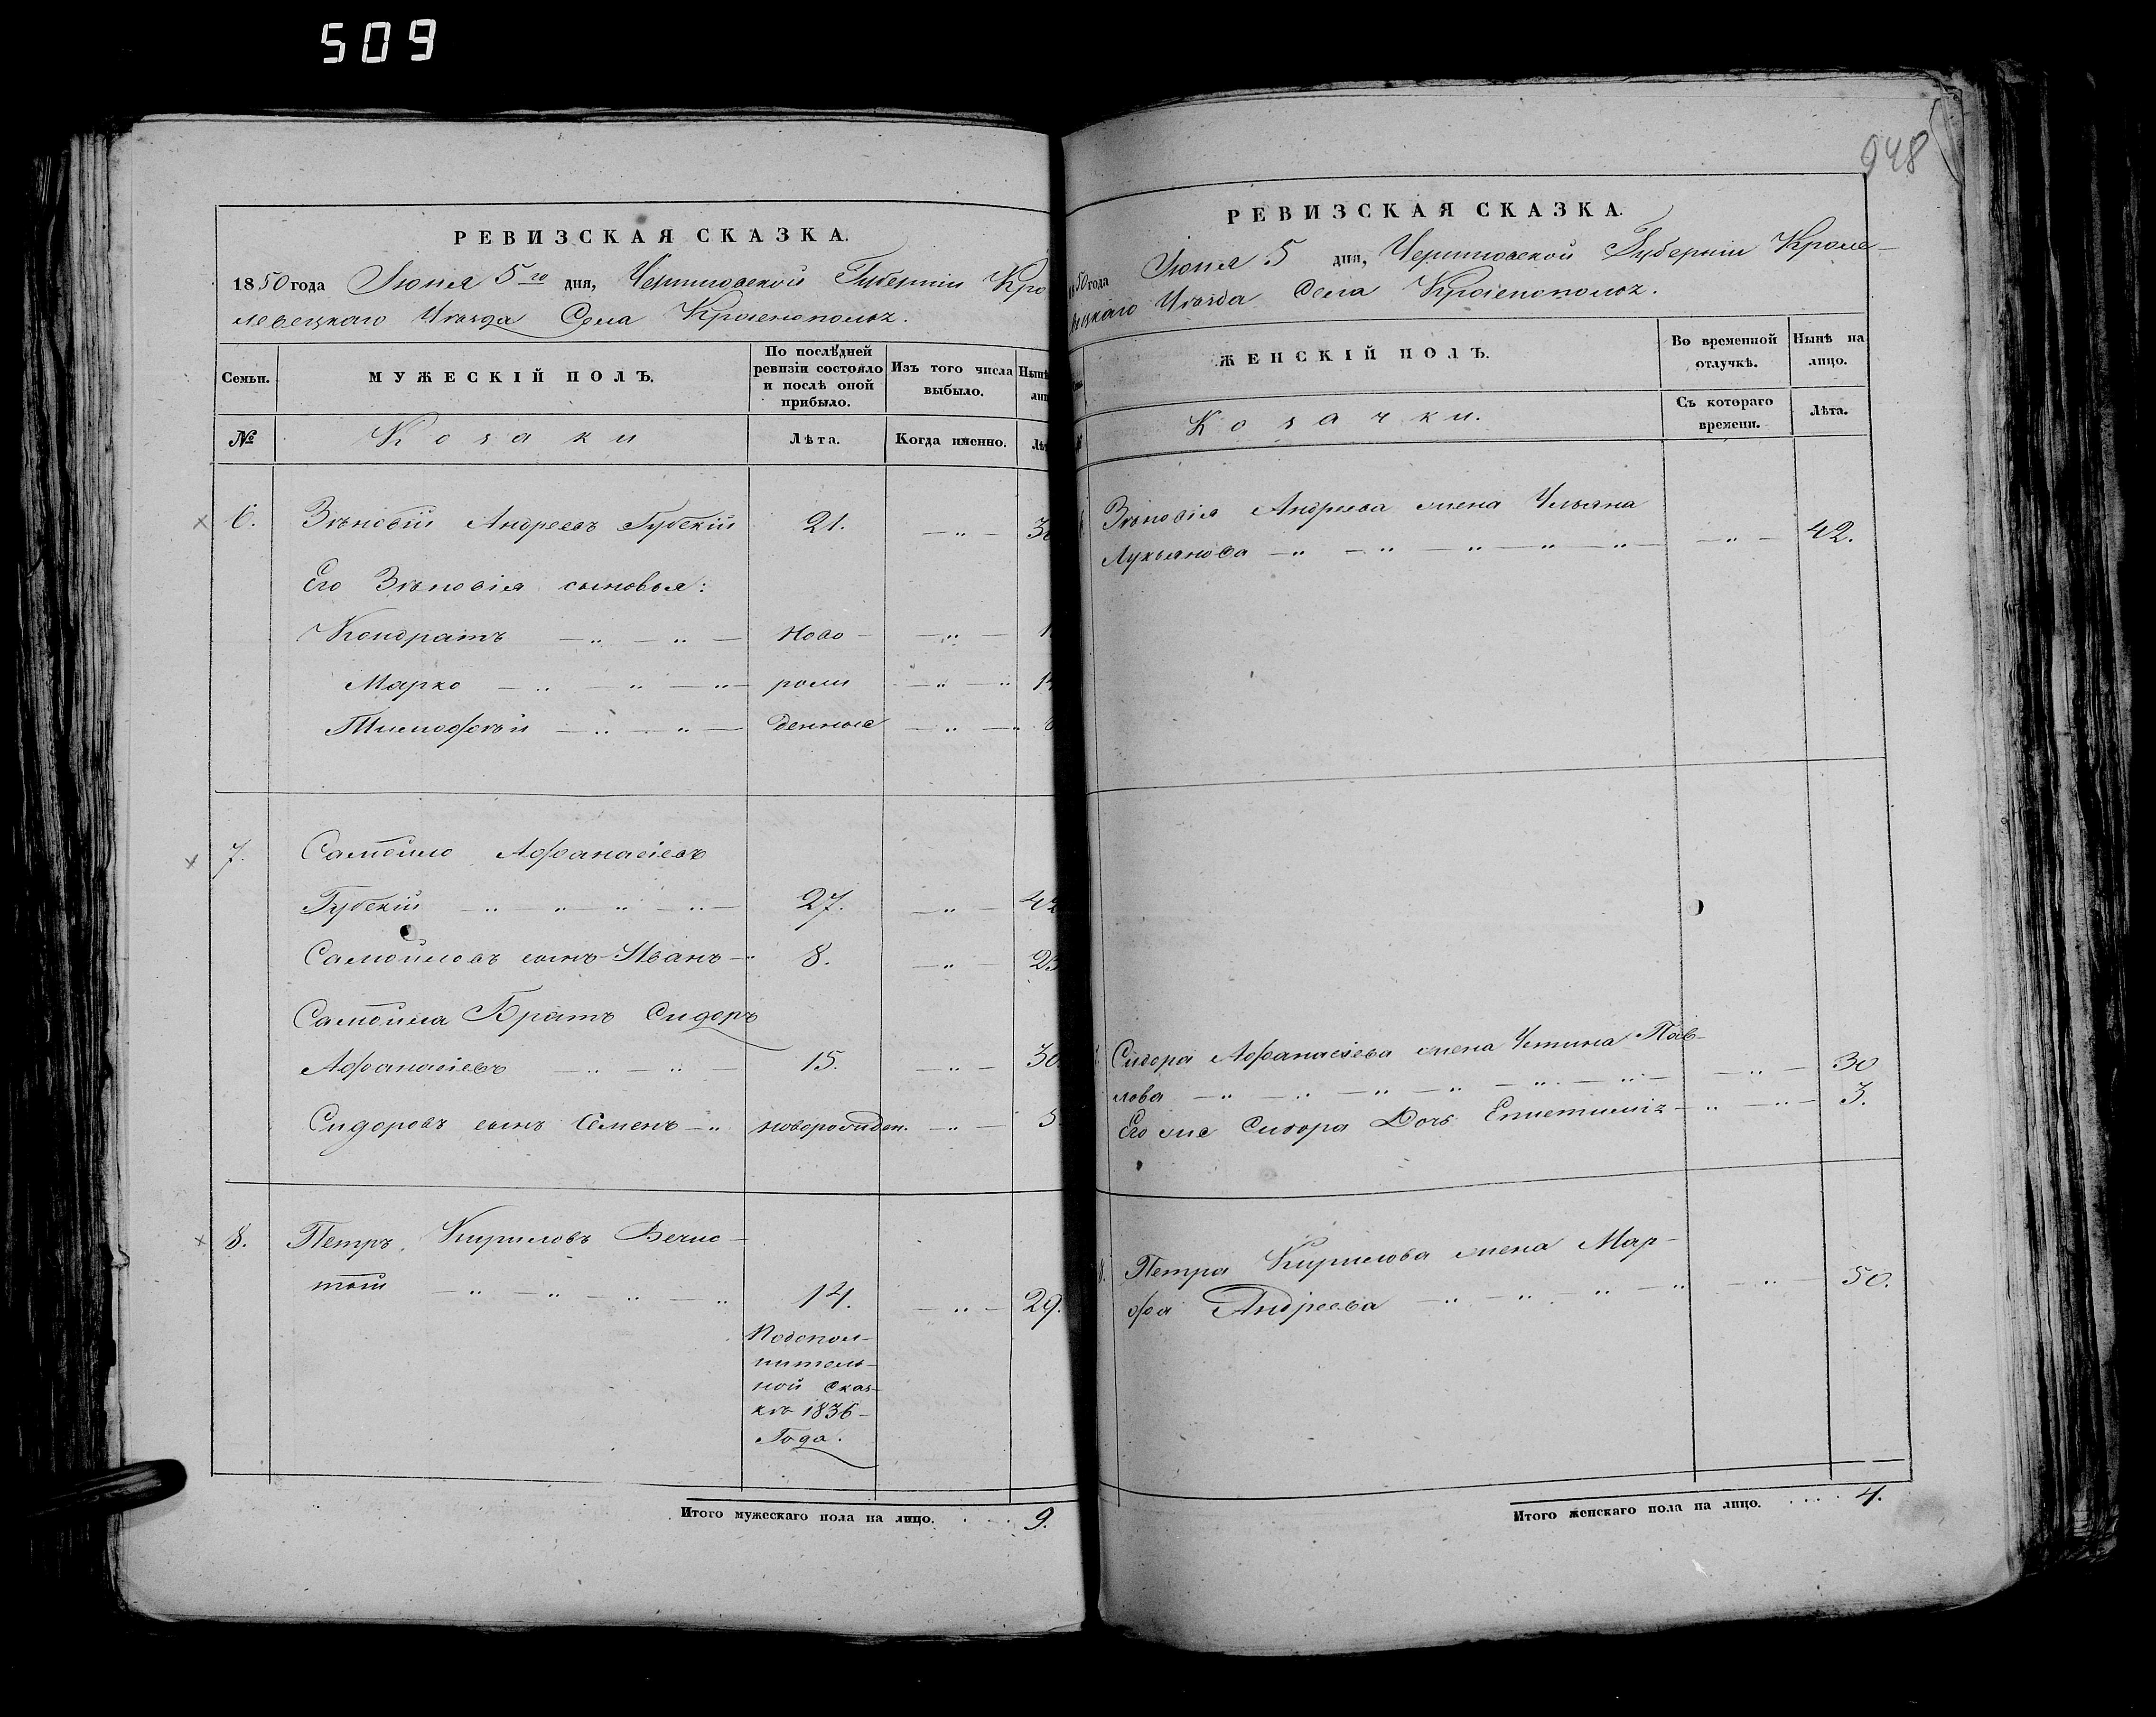 509
948
РЕВИЗСКАЯ СКАЗКА.
1850 года Іюня 5го дня, Черниговской Губерніи Кро
левецкаго Уѣзда Села Красенополья.
Семьи.
МУЖЕСКІЙ ПОЛЪ.
По послѣдней
ревизіи состояло
и послѣ оной
прибыло.
Изъ того числа
выбыло.
Нынѣ
№
Козаки
Лѣта.
Когда именно.
6. Зѣновій Андреевъ Губскій 21. — „ —
Его Зѣновія сыновья:
Кондратъ — „ — „ — Ново — „ —
Марко — „ — „ — „ рож — „ — „
Тимофѣй — „ — „ — денные — „ — „
7. Самойло Афанасіевъ
Губскій — „ — „ — „ — „ — 27. — „ — 42
Самойловъ сынъ Иванъ — „ 8. — „ —
Самойла Братъ Сидоръ
Афанасіевъ — „ — „ — 15. — „ — 30.
Сидоровъ сынъ Семенъ — „ новорожден. — „ — 3
8. Петръ Кириловъ Вечио-
тый — „ — „ — „ — „ 14. — „ — 29.
Подопол-
нитель-
ной сказ-
кѣ 1836
Года.
Итого мужескаго пола на лицо. . . . 9.
РЕВИЗСКАЯ СКАЗКА.
1850 года Іюня 5 дня, Черниговской Губерніи Кроле-
вецкаго Уѣзда Села Красенополья.
ЖЕНСКІЙ ПОЛЪ.
Во временной
отлучкѣ.
Нынѣ на
лицо.
Козачки.
Съ котораго
времени.
Лѣта.
Зѣновія Андреева жена Ульяна
Лукьянова — „ — „ — „ — „ — „ — — „ — 42.
Сидора Афанасіева жена Устина Пав-
лова — „ — „ — „ — „ — „ — „ — — „ — 30
Его же Сидора Дочь Епистимія — „ — „ — 3.
8. Петра Кирилова жена Мар-
фа Андреева — „ — „ — „ — „ — „ — 50.
Итого женскаго пола на лицо. . . . . 4.